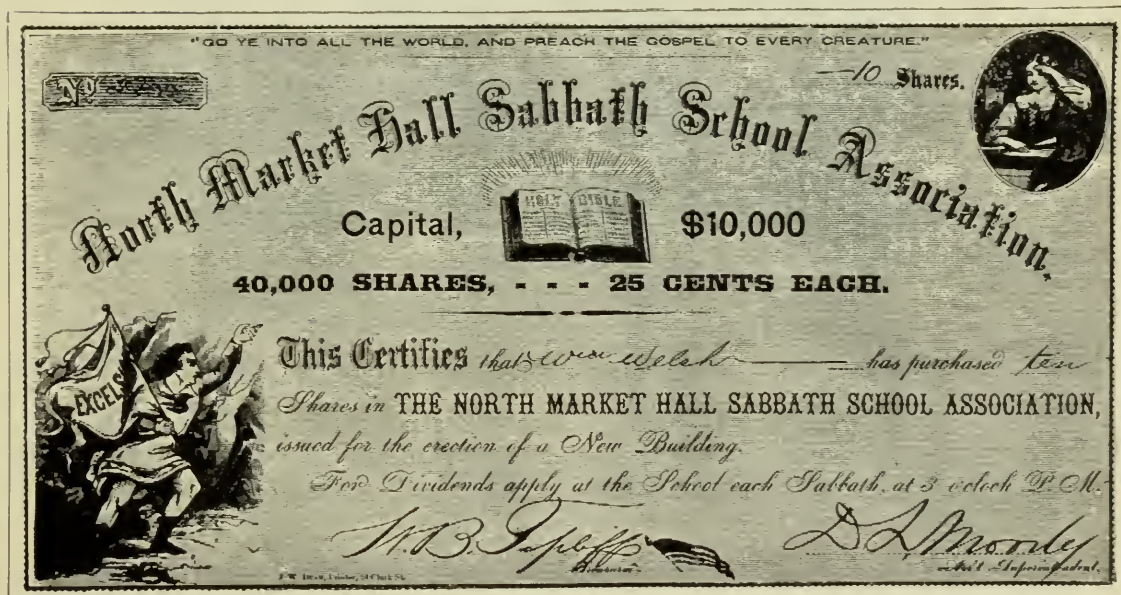 "GO YE INTO ALL THE WORLD, AND PREACH THE GOSPEL TO EVERY CREATURE."
No
10 Shares.
North Market Hall Sabbath School Association.
HOLY BIBLE
Capital, $10,000
40,000 SHARES, - - - 25 CENTS EACH.
EXCELS
This Certifies that Wm Welsh has purchased ten
Shares in THE NORTH MARKET HALL SABBATH SCHOOL ASSOCIATION,
issued for the erection of a New Building.
For Dividends apply at the School each Sabbath, at 3 o'clock P. M.
D L Moody
Treasurer.
Superintendent.